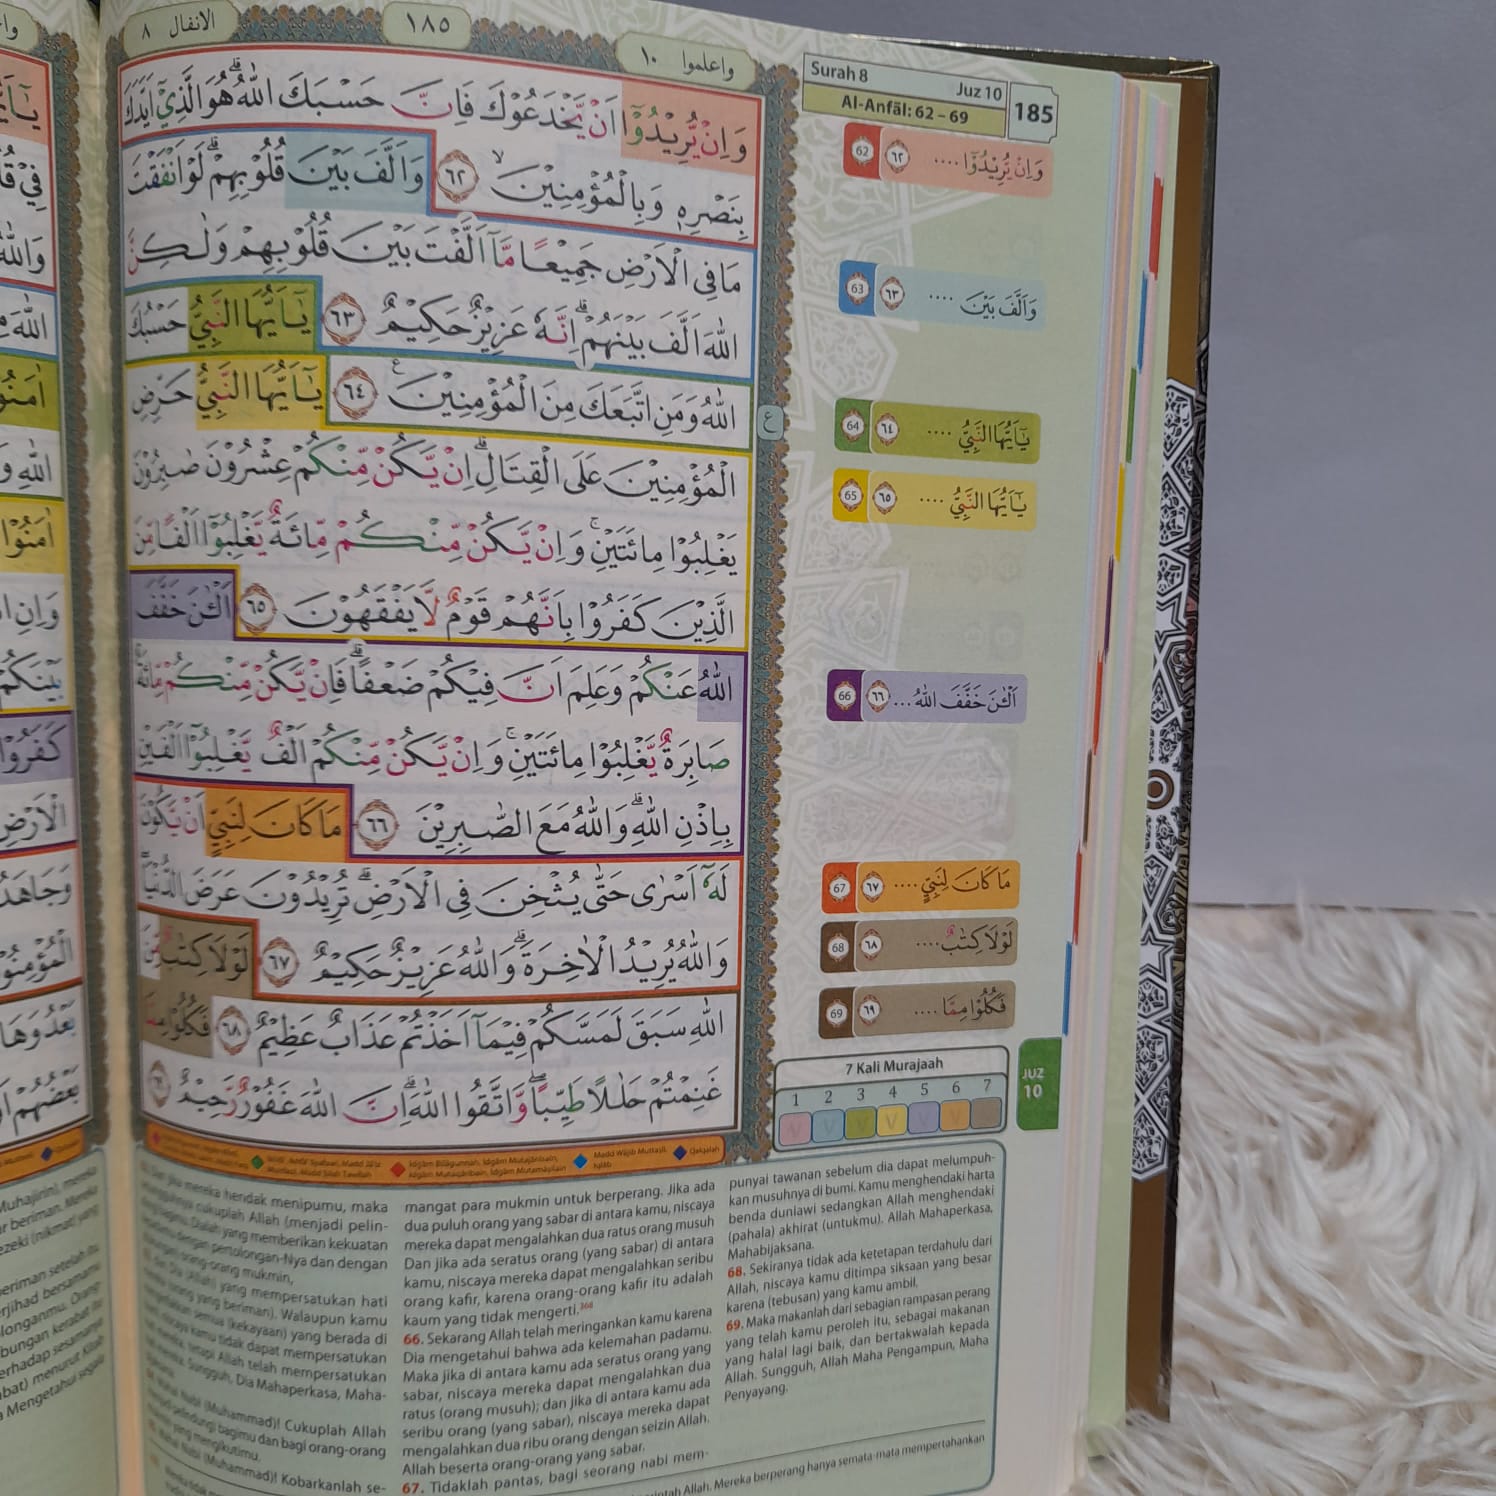 الانفال ٨
١٨٥
واعلموا ١٠
وَاِنْ يُّرِيْدُوْٓا اَنْ يَّخْدَعُوْكَ فَاِنَّ حَسْبَكَ اللّٰهُ ۗهُوَ الَّذِيْٓ اَيَّدَكَ
بِنَصْرِهٖ وَبِالْمُؤْمِنِيْنَۙ ٦٢ وَاَلَّفَ بَيْنَ قُلُوْبِهِمْۗ لَوْ اَنْفَقْتَ
مَا فِى الْاَرْضِ جَمِيْعًا مَّآ اَلَّفْتَ بَيْنَ قُلُوْبِهِمْ وَلٰكِنَّ
اللّٰهَ اَلَّفَ بَيْنَهُمْۗ اِنَّهٗ عَزِيْزٌ حَكِيْمٌ ٦٣ يٰٓاَيُّهَا النَّبِيُّ حَسْبُكَ
اللّٰهُ وَمَنِ اتَّبَعَكَ مِنَ الْمُؤْمِنِيْنَ ࣖ ٦٤ يٰٓاَيُّهَا النَّبِيُّ حَرِّضِ
الْمُؤْمِنِيْنَ عَلَى الْقِتَالِۗ اِنْ يَّكُنْ مِّنْكُمْ عِشْرُوْنَ صٰبِرُوْنَ
يَغْلِبُوْا مِائَتَيْنِۚ وَاِنْ يَّكُنْ مِّنْكُمْ مِّائَةٌ يَّغْلِبُوْٓا اَلْفًا مِّنَ
الَّذِيْنَ كَفَرُوْا بِاَنَّهُمْ قَوْمٌ لَّا يَفْقَهُوْنَ ٦٥ اَلْـٰٔنَ خَفَّفَ
اللّٰهُ عَنْكُمْ وَعَلِمَ اَنَّ فِيْكُمْ ضَعْفًاۗ فَاِنْ يَّكُنْ مِّنْكُمْ مِّائَةٌ
صَابِرَةٌ يَّغْلِبُوْا مِائَتَيْنِۚ وَاِنْ يَّكُنْ مِّنْكُمْ اَلْفٌ يَّغْلِبُوْٓا اَلْفَيْنِ
بِاِذْنِ اللّٰهِۗ وَاللّٰهُ مَعَ الصّٰبِرِيْنَ ٦٦ مَا كَانَ لِنَبِيٍّ اَنْ يَّكُوْنَ
لَهٗٓ اَسْرٰى حَتّٰى يُثْخِنَ فِى الْاَرْضِۗ تُرِيْدُوْنَ عَرَضَ الدُّنْيَاۖ
وَاللّٰهُ يُرِيْدُ الْاٰخِرَةَۗ وَاللّٰهُ عَزِيْزٌ حَكِيْمٌ ٦٧ لَوْلَا كِتٰبٌ مِّنَ
اللّٰهِ سَبَقَ لَمَسَّكُمْ فِيْمَآ اَخَذْتُمْ عَذَابٌ عَظِيْمٌ ٦٨ فَكُلُوْا مِمَّا
غَنِمْتُمْ حَلٰلًا طَيِّبًاۖ وَّاتَّقُوا اللّٰهَ ۗاِنَّ اللّٰهَ غَفُوْرٌ رَّحِيْمٌ
ع
Surah 8
Juz 10
Al-Anfāl: 62 – 69
185
وَاِنْ يُّرِيْدُوْٓا .... ٦٢ 62
وَاَلَّفَ بَيْنَ .... ٦٣ 63
يٰٓاَيُّهَا النَّبِيُّ .... ٦٤ 64
يٰٓاَيُّهَا النَّبِيُّ .... ٦٥ 65
اَلْـٰٔنَ خَفَّفَ اللّٰهُ ... ٦٦ 66
مَا كَانَ لِنَبِيٍّ .... ٦٧ 67
لَوْلَا كِتٰبٌ .... ٦٨ 68
فَكُلُوْا مِمَّا .... ٦٩ 69
7 Kali Murajaah
1 2 3 4 5 6 7
JUZ
10
Idgām Bilāgunnah, Idgām Mutajānisain,
Idgām Mutaqāribain, Idgām Mutamāṡilain
Madd Wājib Muttaṣil,
Iqlāb
Qalqalah
jika mereka hendak menipumu, maka
cukuplah Allah (menjadi pelin-
Dialah yang memberikan kekuatan
dengan pertolongan-Nya dan dengan
orang-orang mukmin,
dan Dia (Allah) yang mempersatukan hati
(orang yang beriman). Walaupun kamu
semua (kekayaan) yang berada di
niscaya kamu tidak dapat mempersatukan
tetapi Allah telah mempersatukan
Sungguh, Dia Mahaperkasa, Maha-
Nabi (Muhammad)! Cukuplah Allah
bagimu dan bagi orang-orang
yang mengikutimu.
Nabi (Muhammad)! Kobarkanlah se-
mangat para mukmin untuk berperang. Jika ada
dua puluh orang yang sabar di antara kamu, niscaya
mereka dapat mengalahkan dua ratus orang musuh
Dan jika ada seratus orang (yang sabar) di antara
kamu, niscaya mereka dapat mengalahkan seribu
orang kafir, karena orang-orang kafir itu adalah
kaum yang tidak mengerti.
66. Sekarang Allah telah meringankan kamu karena
Dia mengetahui bahwa ada kelemahan padamu.
Maka jika di antara kamu ada seratus orang yang
sabar, niscaya mereka dapat mengalahkan dua
ratus (orang musuh); dan jika di antara kamu ada
seribu orang (yang sabar), niscaya mereka dapat
mengalahkan dua ribu orang dengan seizin Allah.
Allah beserta orang-orang yang sabar.
67. Tidaklah pantas, bagi seorang nabi mem-
punyai tawanan sebelum dia dapat melumpuh-
kan musuhnya di bumi. Kamu menghendaki harta
benda duniawi sedangkan Allah menghendaki
(pahala) akhirat (untukmu). Allah Mahaperkasa,
Mahabijaksana.
68. Sekiranya tidak ada ketetapan terdahulu dari
Allah, niscaya kamu ditimpa siksaan yang besar
karena (tebusan) yang kamu ambil.
69. Maka makanlah dari sebagian rampasan perang
yang telah kamu peroleh itu, sebagai makanan
yang halal lagi baik, dan bertakwalah kepada
Allah. Sungguh, Allah Maha Pengampun, Maha
Penyayang.
Allah. Mereka berperang hanya semata-mata mempertahankan